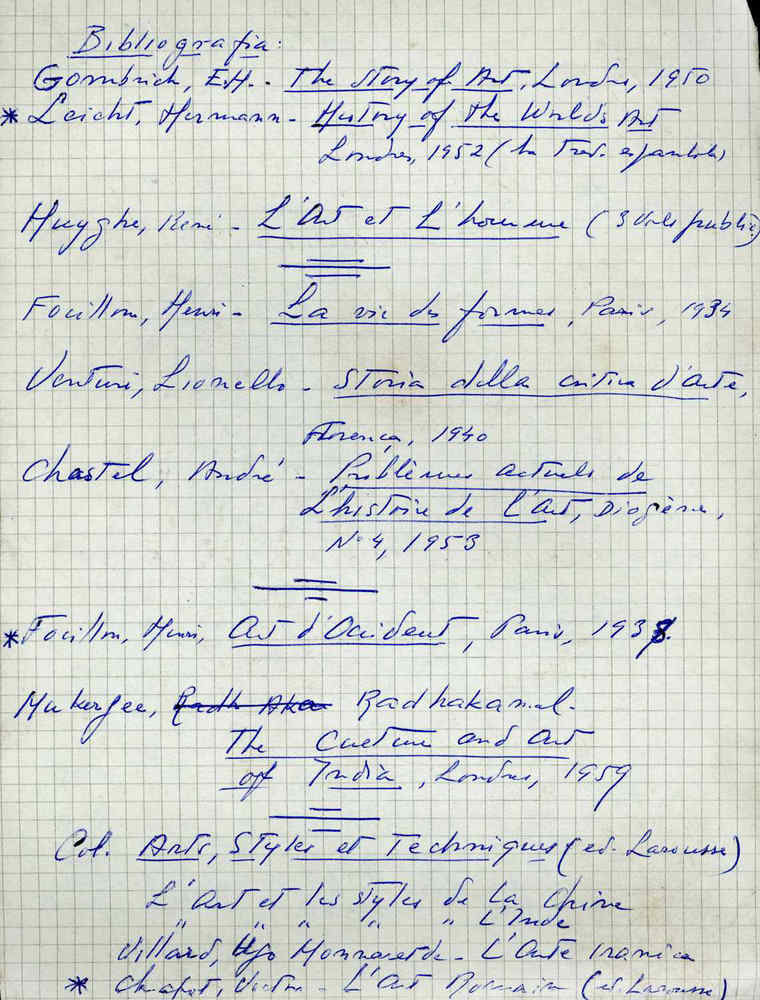 Bibliografia:
Gombrich, E.H. - The Story of Art, Londres, 1950
* Leicht, Hermann - History of the World's Art
Londres, 1952 (ha trad. espanhola)
Huyghe, René - L'Art et L'homme (3 vols public.)
Focillon, Henri - La vie des formes, Paris, 1934
Venturi, Lionello - Storia della critica d'Arte,
Florença, 1940
Chastel, André - Problèmes actuels de
L'histoire de L'Art, Diogène,
Nº 4, 1953
* Focillon, Henri, Art d'Occident, Paris, 1938.
Mukerjee, Radhakamal.
The Culture and Art
of India, Londres, 1959
Col. Arts, Styles et Techniques (ed. Larousse)
L'Art et les styles de La Chine
" " " " " L'Inde
Villard, Ugo Monneret de - L'Arte Iranica
* Chapot, Victor - L'Art Romain (ed. Larousse)